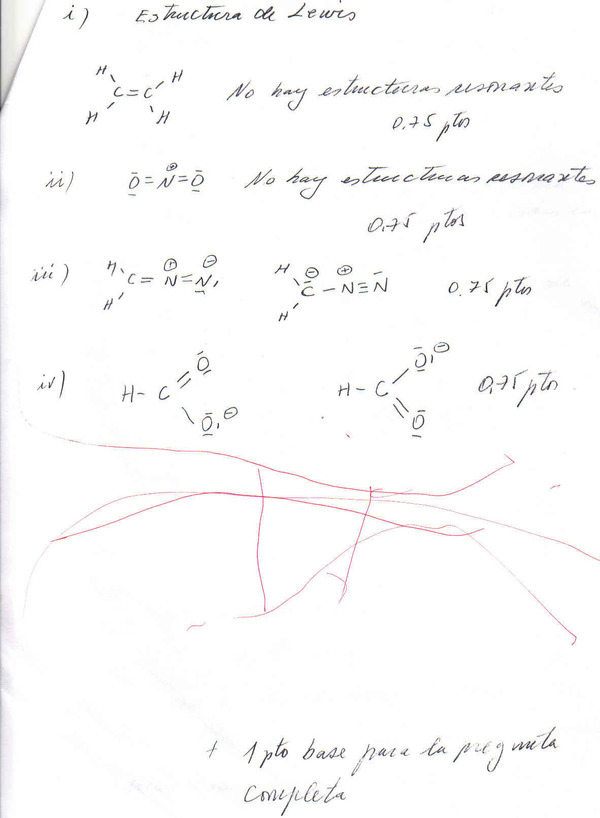 i) Estructura de Lewis
H H
C=C No hay estructuras resonantes
H H
0.75 ptos
ii) O=N⊕=O No hay estructuras resonantes
0.75 ptos
iii) H H
C=N⊕=N⊖ C⊖-N⊕≡N 0.75 ptos
H H
iv) O O⊖
H-C H-C 0,75 ptos
O⊖ O
+ 1 pto base para la pregunta
completa